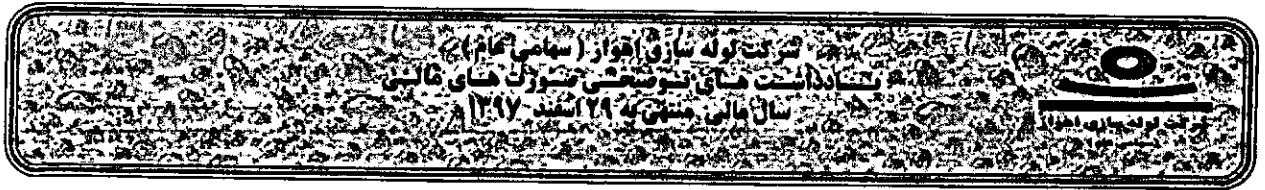 شرکت لوله سازی اهواز ( سهامی عام )
یادداشت های توضیحی صورت های مالی
سال مالی منتهی به ۲۹ اسفند ۱۳۹۷
شرکت لوله سازی اهواز